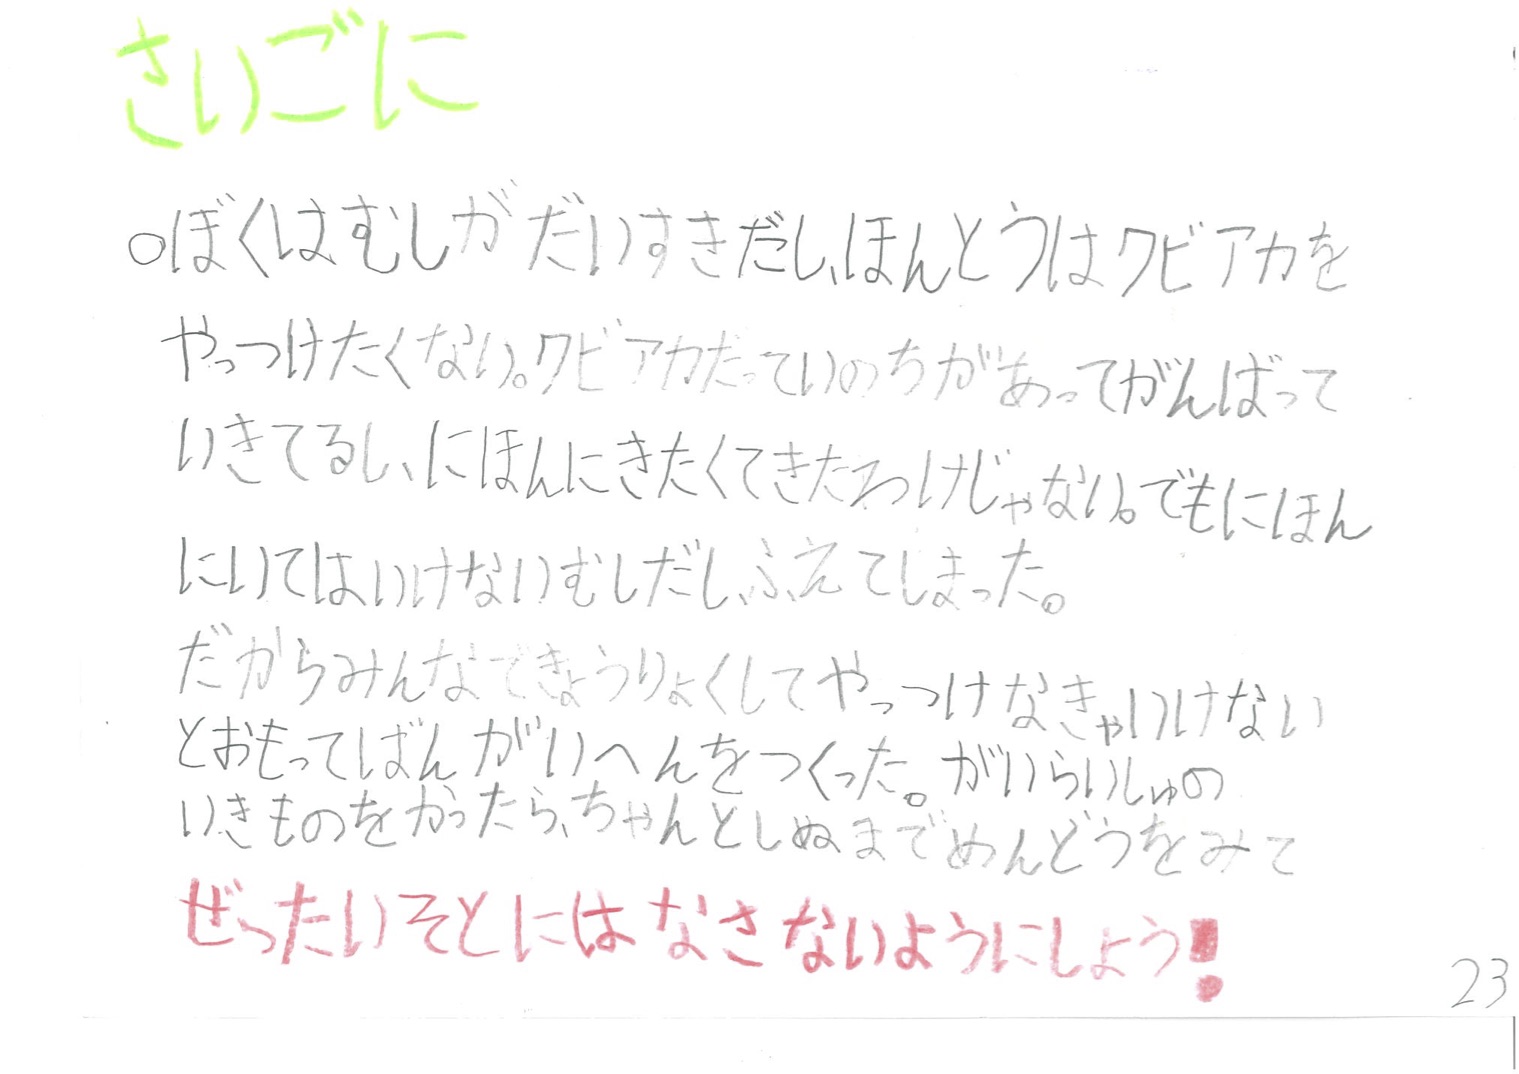 さいごに
○ぼくはむしがだいすきだし、ほんとうはクビアカを
やっつけたくない。クビアカだっていのちがあってがんばって
いきてるし、にほんにきたくてきたわけじゃない。でもにほん
にいてはいけないむしだし、ふえてしまった。
だからみんなできょうりょくしてやっつけなきゃいけない
とおもってばんがいへんをつくった。がいらいしゅの
いきものをかったら、ちゃんとしぬまでめんどうをみて
ぜったいそとにはなさないようにしよう!
23